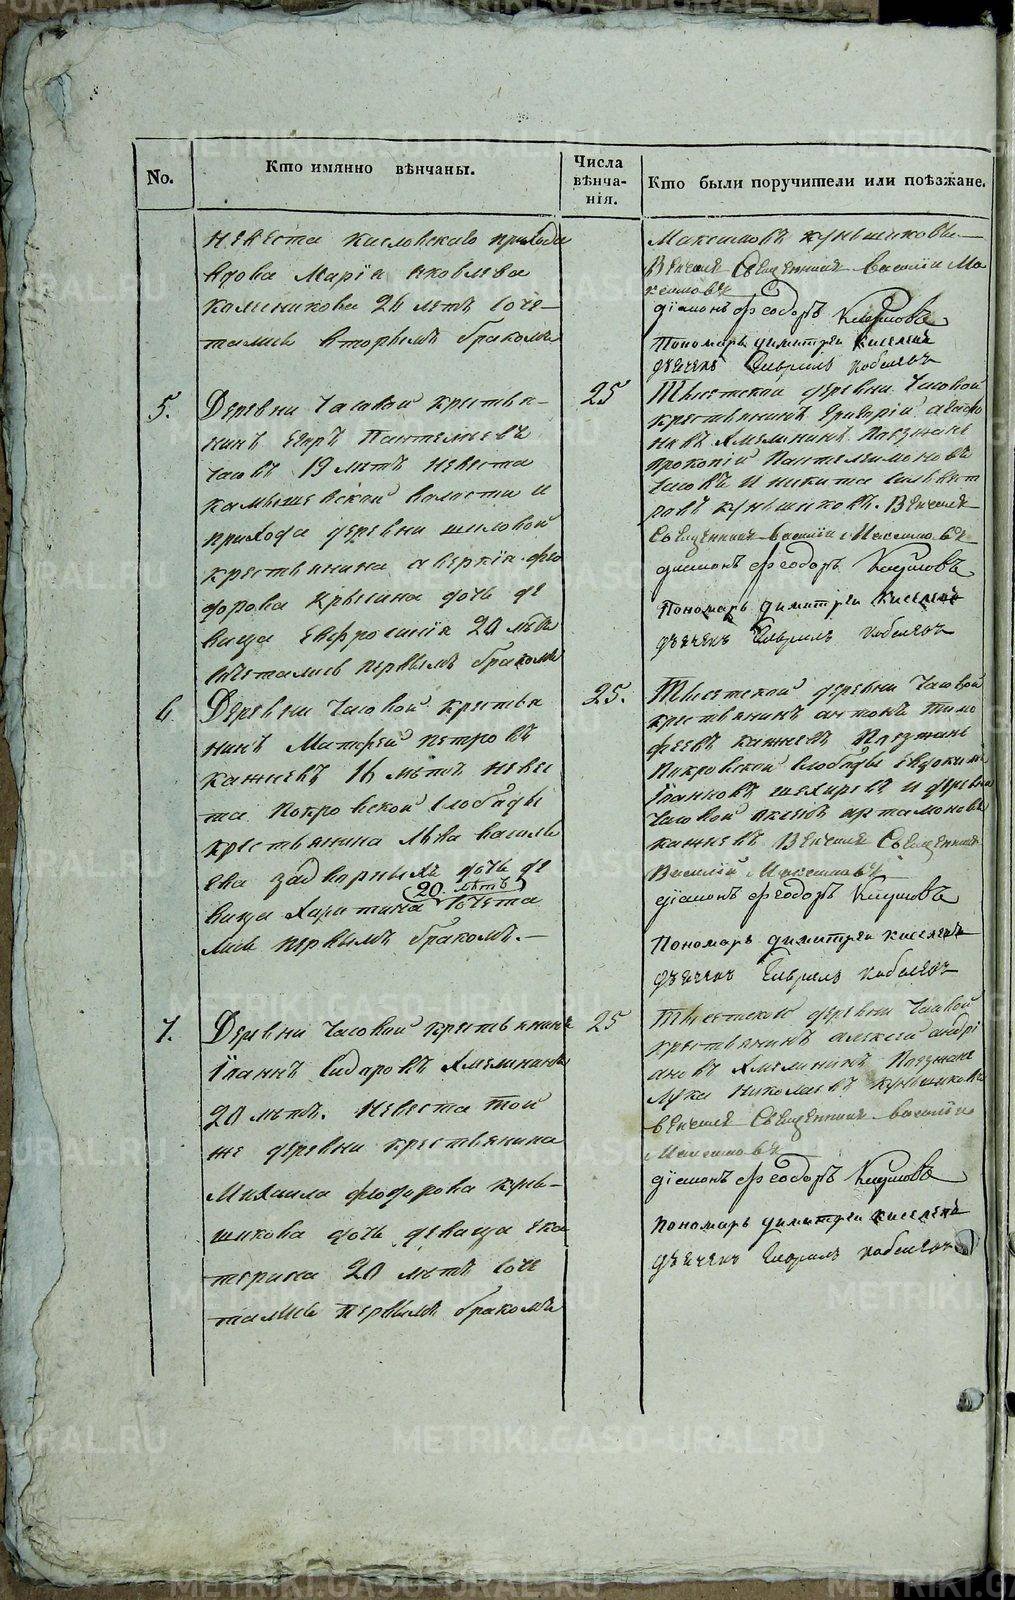 No.
Кто имянно вѣнчаны.
Числа
вѣнча-
нія.
Кто были поручители или поѣзжане.
невеста кисловскаго прихода
вдова Марїя яковлева
колесникова 26 летъ соче-
тались вторымъ бракомъ
Максимовъ куньшиковъ.—
Венчалъ Священникъ василїи Ма
ксимовъ
дїаконъ феодоръ
пономарь димитреи киселевъ
дьячекъ Гаврилъ кобелевъ
5.
Деревни часовой крестья-
нинъ егоръ Пантелеевъ
часовъ 19 летъ невеста
камышевской волости и
прихода деревни шиловой
крестьянина аверкїа фео
дорова крысина дочь де
вица евфросинїя 20 летъ
сочетались первымъ бракомъ
25
Тысетской деревни часовой
крестьянинъ григорїи
Хмелининъ Поезжане
прокопїи Пантелеимоновъ
часовъ и никита сильвест
ровъ куньшиковъ. Венчалъ
Священникъ василїи Максимовъ
дїаконъ феодоръ
пономарь димитреи киселевъ
дьячекъ Гаврилъ кобелевъ
6
Деревни часовой крестья
нинъ Матфеи петровъ
кажневъ 16 летъ неве
ста покровской слободы
крестьянина лва василь
ева задворныхъ дочь де
20 летъ
вица харитина сочета
лись первымъ бракомъ.—
25.
Тысетской деревни часовой
крестьянинъ антонъ тимо
феевъ кажневъ Поезжане
покровской слободы евдокимъ
Їоанновъ и деревни
часовой артамоновъ
кажневъ Венчалъ Священникъ
Василїи Максимовъ
дїаконъ феодоръ
пономарь димитреи киселевъ
дьячекъ Гаврилъ кобелевъ
7.
Деревни часовой крестьянинъ
Їоаннъ Сидоровъ Хмелининъ
20 летъ. невеста той
же деревни крестьянина
Михаила феодорова кунь-
шикова дочь девица ека
терина 20 летъ соче
тались первымъ бракомъ
25
Тысетской деревни часовой
крестьянинъ алексеи андрї
ановъ Хмелининъ Поезжане
лука николаевъ куньшиковъ
венчалъ Священникъ василїи
Максимовъ
дїаконъ феодоръ
пономарь димитреи киселевъ
дьячекъ Гаврилъ кобелевъ
METRIKI.GASO-URAL.RU